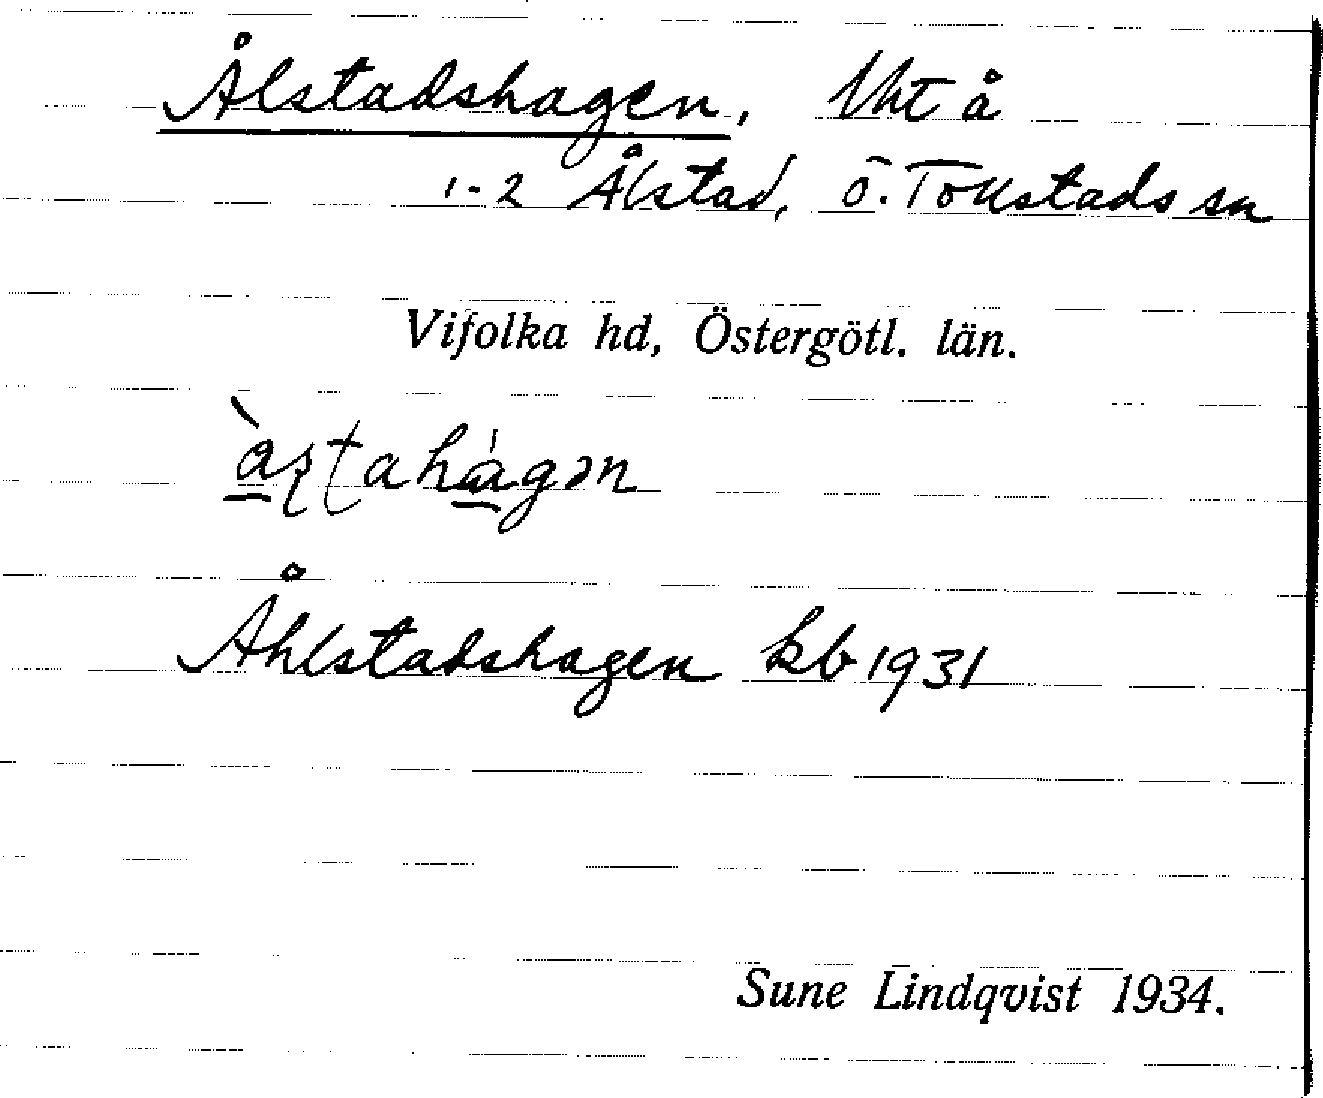 Ålstadshagen, lht å
1-2 Ålstad, Ö. Tollstads sn
Vifolka hd, Östergötl. län.
Åhlstadshagen kb 1931
Sune Lindqvist 1934.